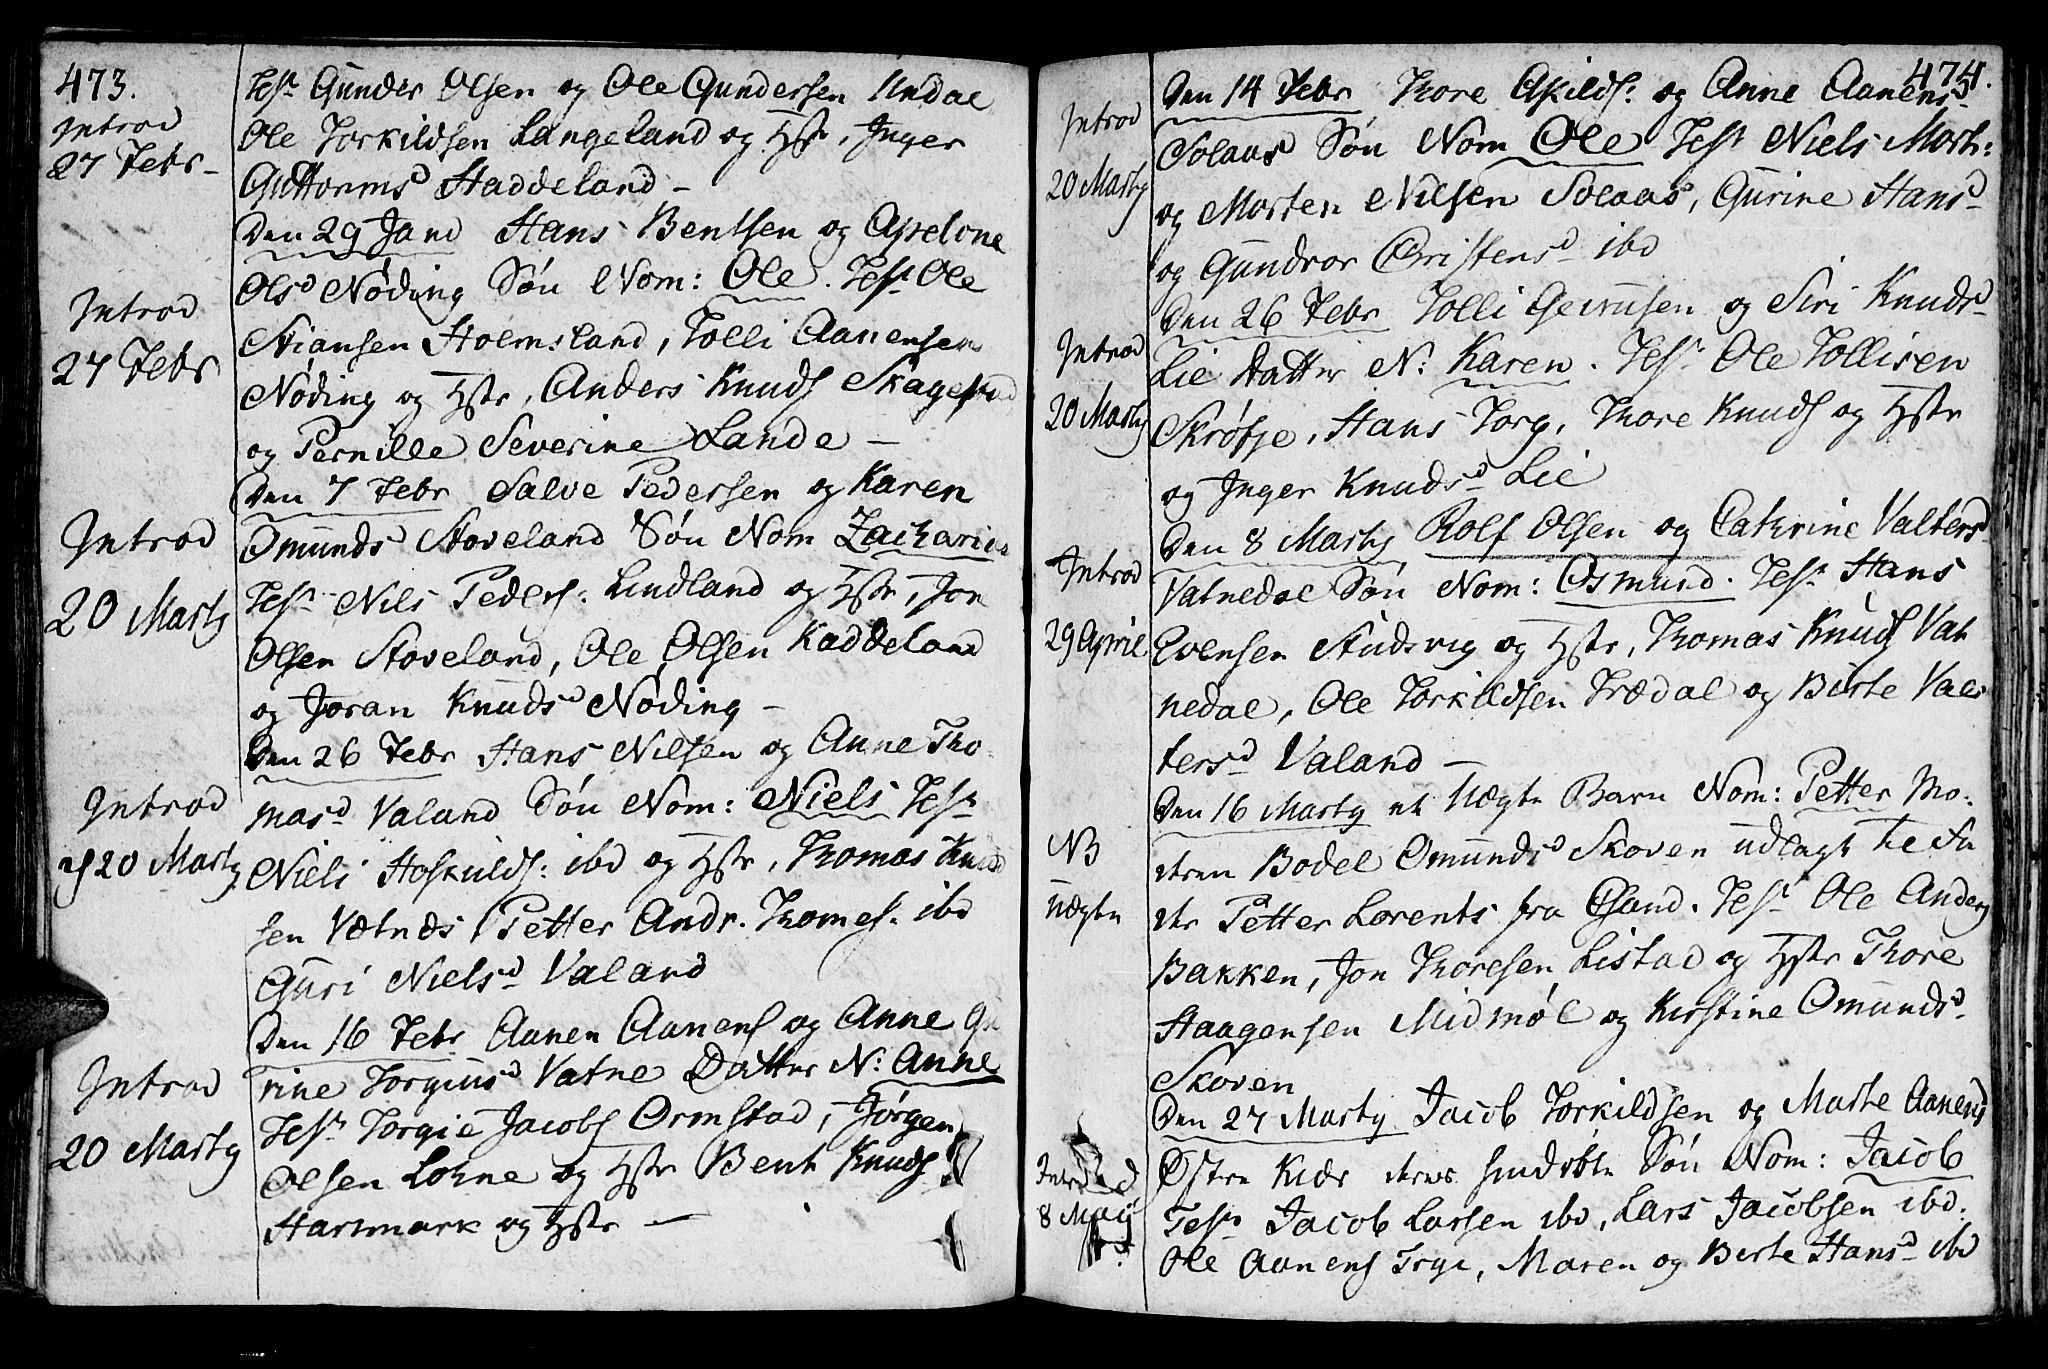 473.
Introd
27 Febr
Test Gunder Olsen og Ole Gundersen Undal
Ole Torkildsen Langeland og Hstr, Inger
Guttormsd Haddeland –
Introd
27 Febr
Den 29 Janv Hans Bentsen og Apelone
Olsd Nøding Søn Nom: Ole. Test Ole
Stiansen Holmsland, Tolli Aanensen
Nøding og Hstr, Anders Knuds
og Pernille Severine Lande –
Introd
20 Marty
Den 7 Febr Salve Pedersen og Karen
Omunds Stoveland Søn Nom Zacharias
Test Nils Peders: Lindland og Hstr, Jon
Olsen Stoveland, Ole Olsen Kaddeland
og Joran Knudsd Nøding –
Introd
20 Marty
Den 26 Febr Hans Nilsen og Anne Tho
masd Valand Søn Nom: Niels Test
Niels Hoskuilds: ibd og Hstr, Thomas Knud
sen Vatneds Petter Andr. Thomes. ibd
Guri Nielsd Valand
Introd
20 Marty
Den 16 Febr Aanen Aanens og Anne Gu
rine Torgiusd Vatne Datter N: Anne
Test Torgie Jacobs Ormstad, Jørgen
Olsen Lohne og Hstr Bent Knuds
Hartmark og Hstr –
474.
Introd
20 Marty
Den 14 Febr Thore Askilds: og Anne Aanens
Solaas Søn Nom Ole Test Niels Mort:
og Morten Nilsen Solaas, Gurine Hansd
og Gundror Christensd ibd
Introd
20 Marty
Den 26 Febr Tolli Geirusen og Siri Knudsd
Lie Datter N: Karen. Test Ole Tollisen
Skrøbje, Hans Torp, Thore Knuds og Hstr
og Inger Knudsd Lie
Introd
29 April
Den 8 Marty Rolf Olsen og Cathrine Valtersd
Vatnedal Søn Nom: Osmund. Test Hans
Evensen Studsvig og Hstr, Thomas Knuds Vat
nedal, Ole Torkildsen Trædal og Birte Val
tersd Valand –
NB
Uægte
Den 16 Marty et Uægte Barn Nom: Petter Mo:
deren Bodel Omundsd Skoven udlagt te Fa
der Petter Lorents fra Csand. Test Ole Anders
Bakken, Jon Thoresen Listad og Hstr Thore
Haagensen Midmøl og Kirstine Omundsd
Skoven
Introd
8 Maij
Den 27 Marty Jacob Torkildsen og Marte Aanensd
Østre Kiær deres Søn Nom: Jacob
Test Jacob Larsen ibd, Lars Jacobsen ibd.
Ole Aanens Trye, Maren og Birte Hansd ibd